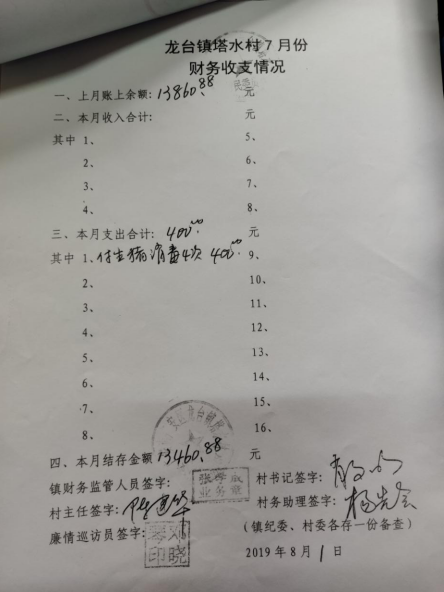 龙台镇塔水村7月份
财务收支情况
一、上月账上余额: 13860.88 元
二、本月收入合计: 元
其中 1、 5、
2、 6、
3、 7、
4、 8、
三、本月支出合计: 400.00 元
其中 1、付生猪消毒4次 400.00 9、
2、 10、
3、 11、
4、 12、
5、 13、
6、 14、
7、 15、
8、 16、
四、本月结存金额 13460.88 元
镇财务监管人员签字: 村书记签字:
业务章
村主任签字: 村务助理签字:
廉情巡访员签字: (镇纪委、村委各存一份备查)
2019年8月1日